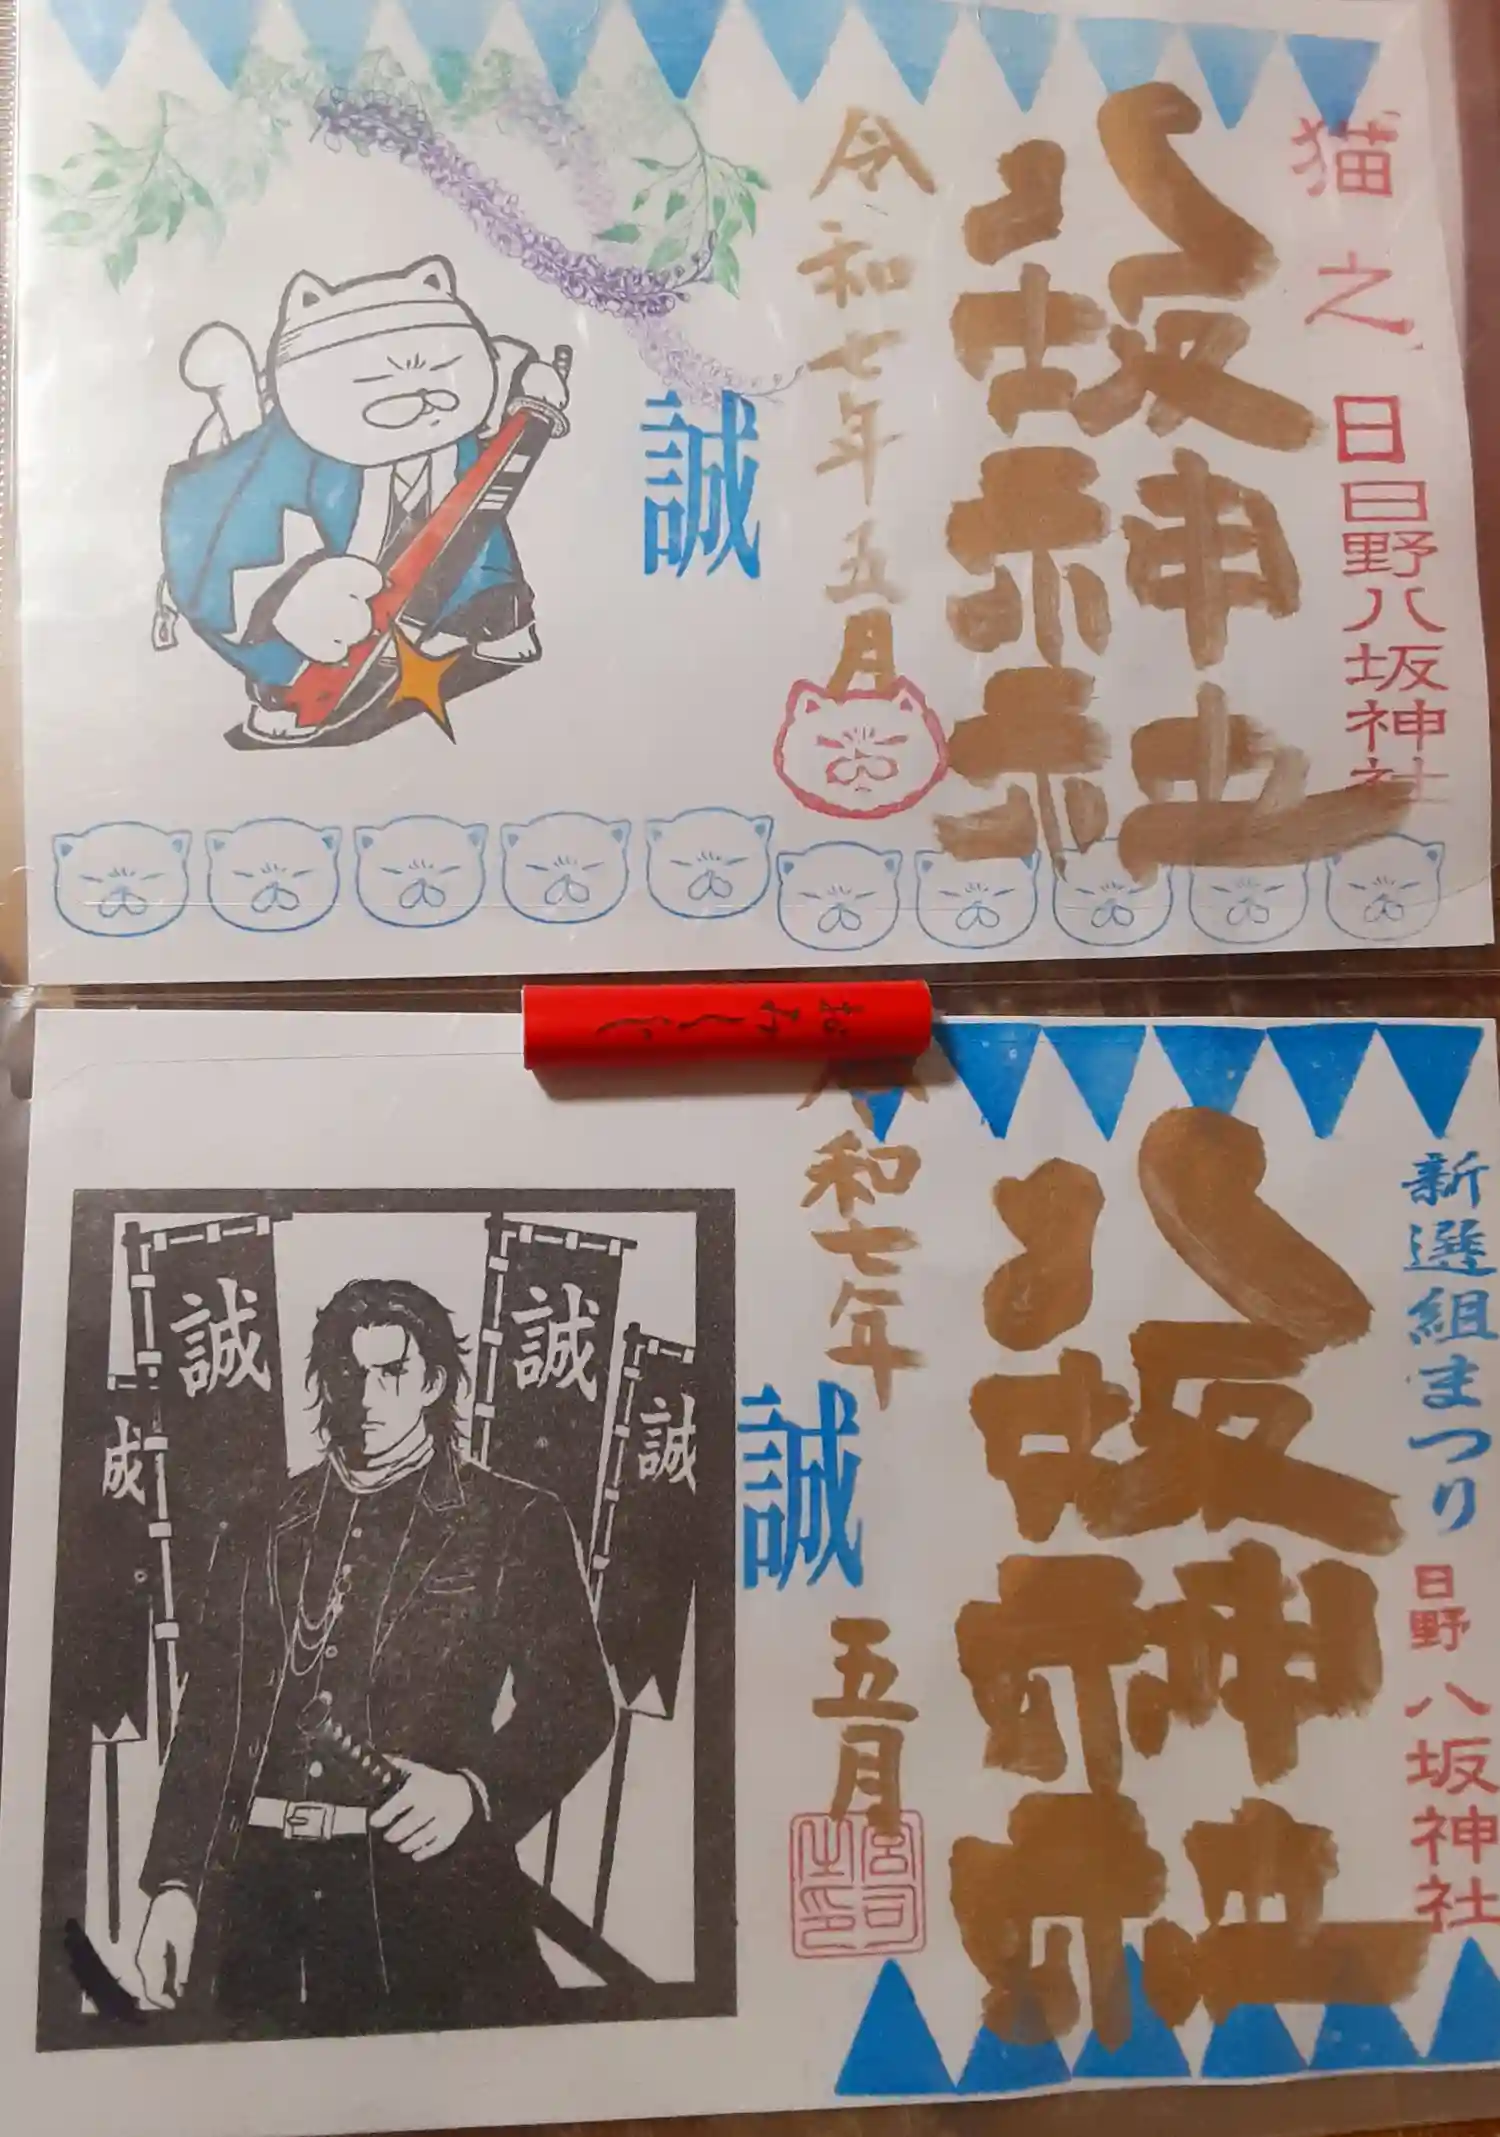 猫之日
日野八坂神社
八坂神社
令和七年五月
誠
新選組まつり
日野八坂神社
八坂神社
和七年
五月
誠
誠
誠
誠
成
宮司之印